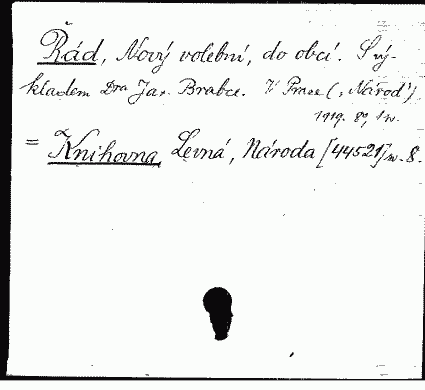 Řád, Nový volební, do obcí. S vý-
kladem Dra Jar. Brabce. V Praze („Národ“)
1919. 8°, 1 w.
= Knihovna Levná, Národa [44521] w. 8.